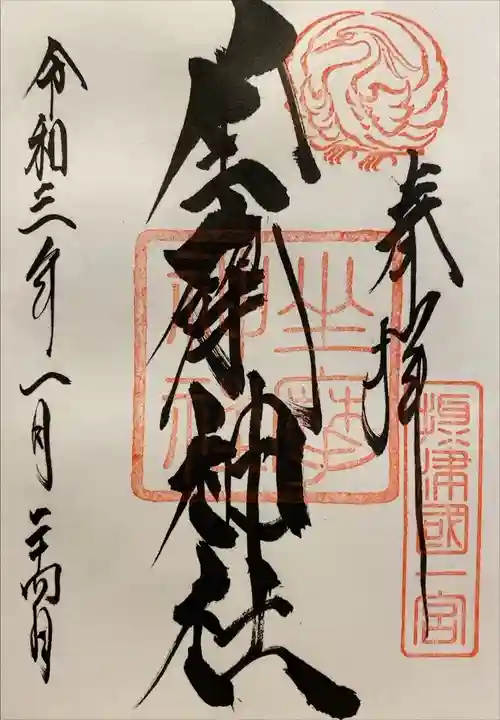 奉拝
摂津國一宮
坐摩神社
坐摩
神社
令和三年一月二十四日